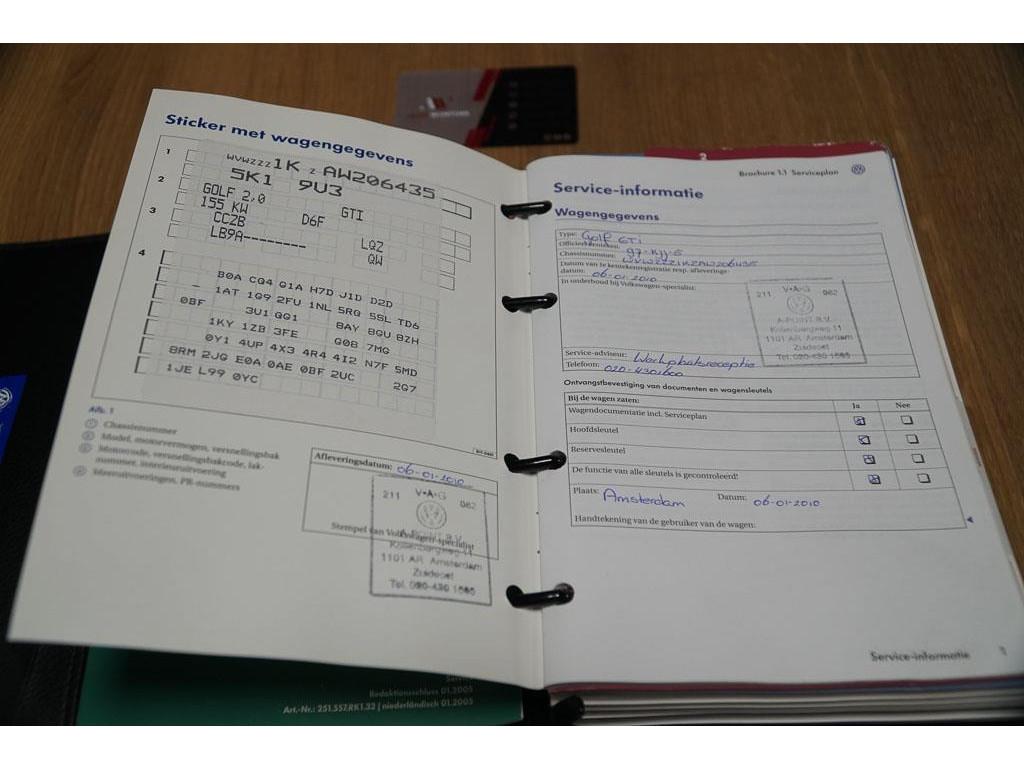 Sticker met wagengegevens
1 WVWZZZ1K Z AW206435
2 5K1 9U3
GOLF 2,0 GTI
3 155 KW D6F
CCZB LQZ
LB9A-------- QW
4
B0A CQ4 G1A H7D J1D D2D
_ 1AT 1G9 2FU 1NL 5RQ 5SL TD6
0BF 3U1 QG1 BAY 8GU 8ZH
1KY 1ZB 3FE G0B 7MG
0Y1 4UP 4X3 4R4 4I2 N7F 5MD
8RM 2JG E0A 0AE 0BF 2UC 2G7
1JE L99 0YC
Afb. 1
1 Chassisnummer
2 Model, motorvermogen, versnellingsbak
3 Motorcode, versnellingsbakcode, lak-
nummer, interieuruitvoering
4 Meeruitvoeringen, PR-nummers
Afleveringsdatum: 06-01-2010
211 V·A·G 062
Stempel van Volkswagen-specialist
A-POINT B.V.
Kollenbergweg 11
1101 AR Amsterdam
Zuidoost
Tel. 020-430 1585
Service
Redaktionsschluss 01.2005
Art.-Nr.: 251.557.RK1.32 | niederländisch 01.2005
2
Brochure 1.1 Serviceplan
Service-informatie
Wagengegevens
Type: Golf GTi
Officieel kenteken: 97-KJJ-5
Chassisnummer: WVWZZZ1KZAW206435
Datum van 1e kentekenregistratie resp. afleverings-
datum: 06-01-2010
In onderhoud bij Volkswagen-specialist:
211 V·A·G 062
A-POINT B.V.
Kollenbergweg 11
1101 AR Amsterdam
Zuidoost
Tel. 020-430 1585
Service-adviseur: Werkplaatsreceptie
Telefoon: 020-4301600
Ontvangstbevestiging van documenten en wagensleutels
Bij de wagen zaten: Ja Nee
Wagendocumentatie incl. Serviceplan
Hoofdsleutel
Reservesleutel
De functie van alle sleutels is gecontroleerd!
Plaats: Amsterdam Datum: 06-01-2010
Handtekening van de gebruiker van de wagen:
Service-informatie 1